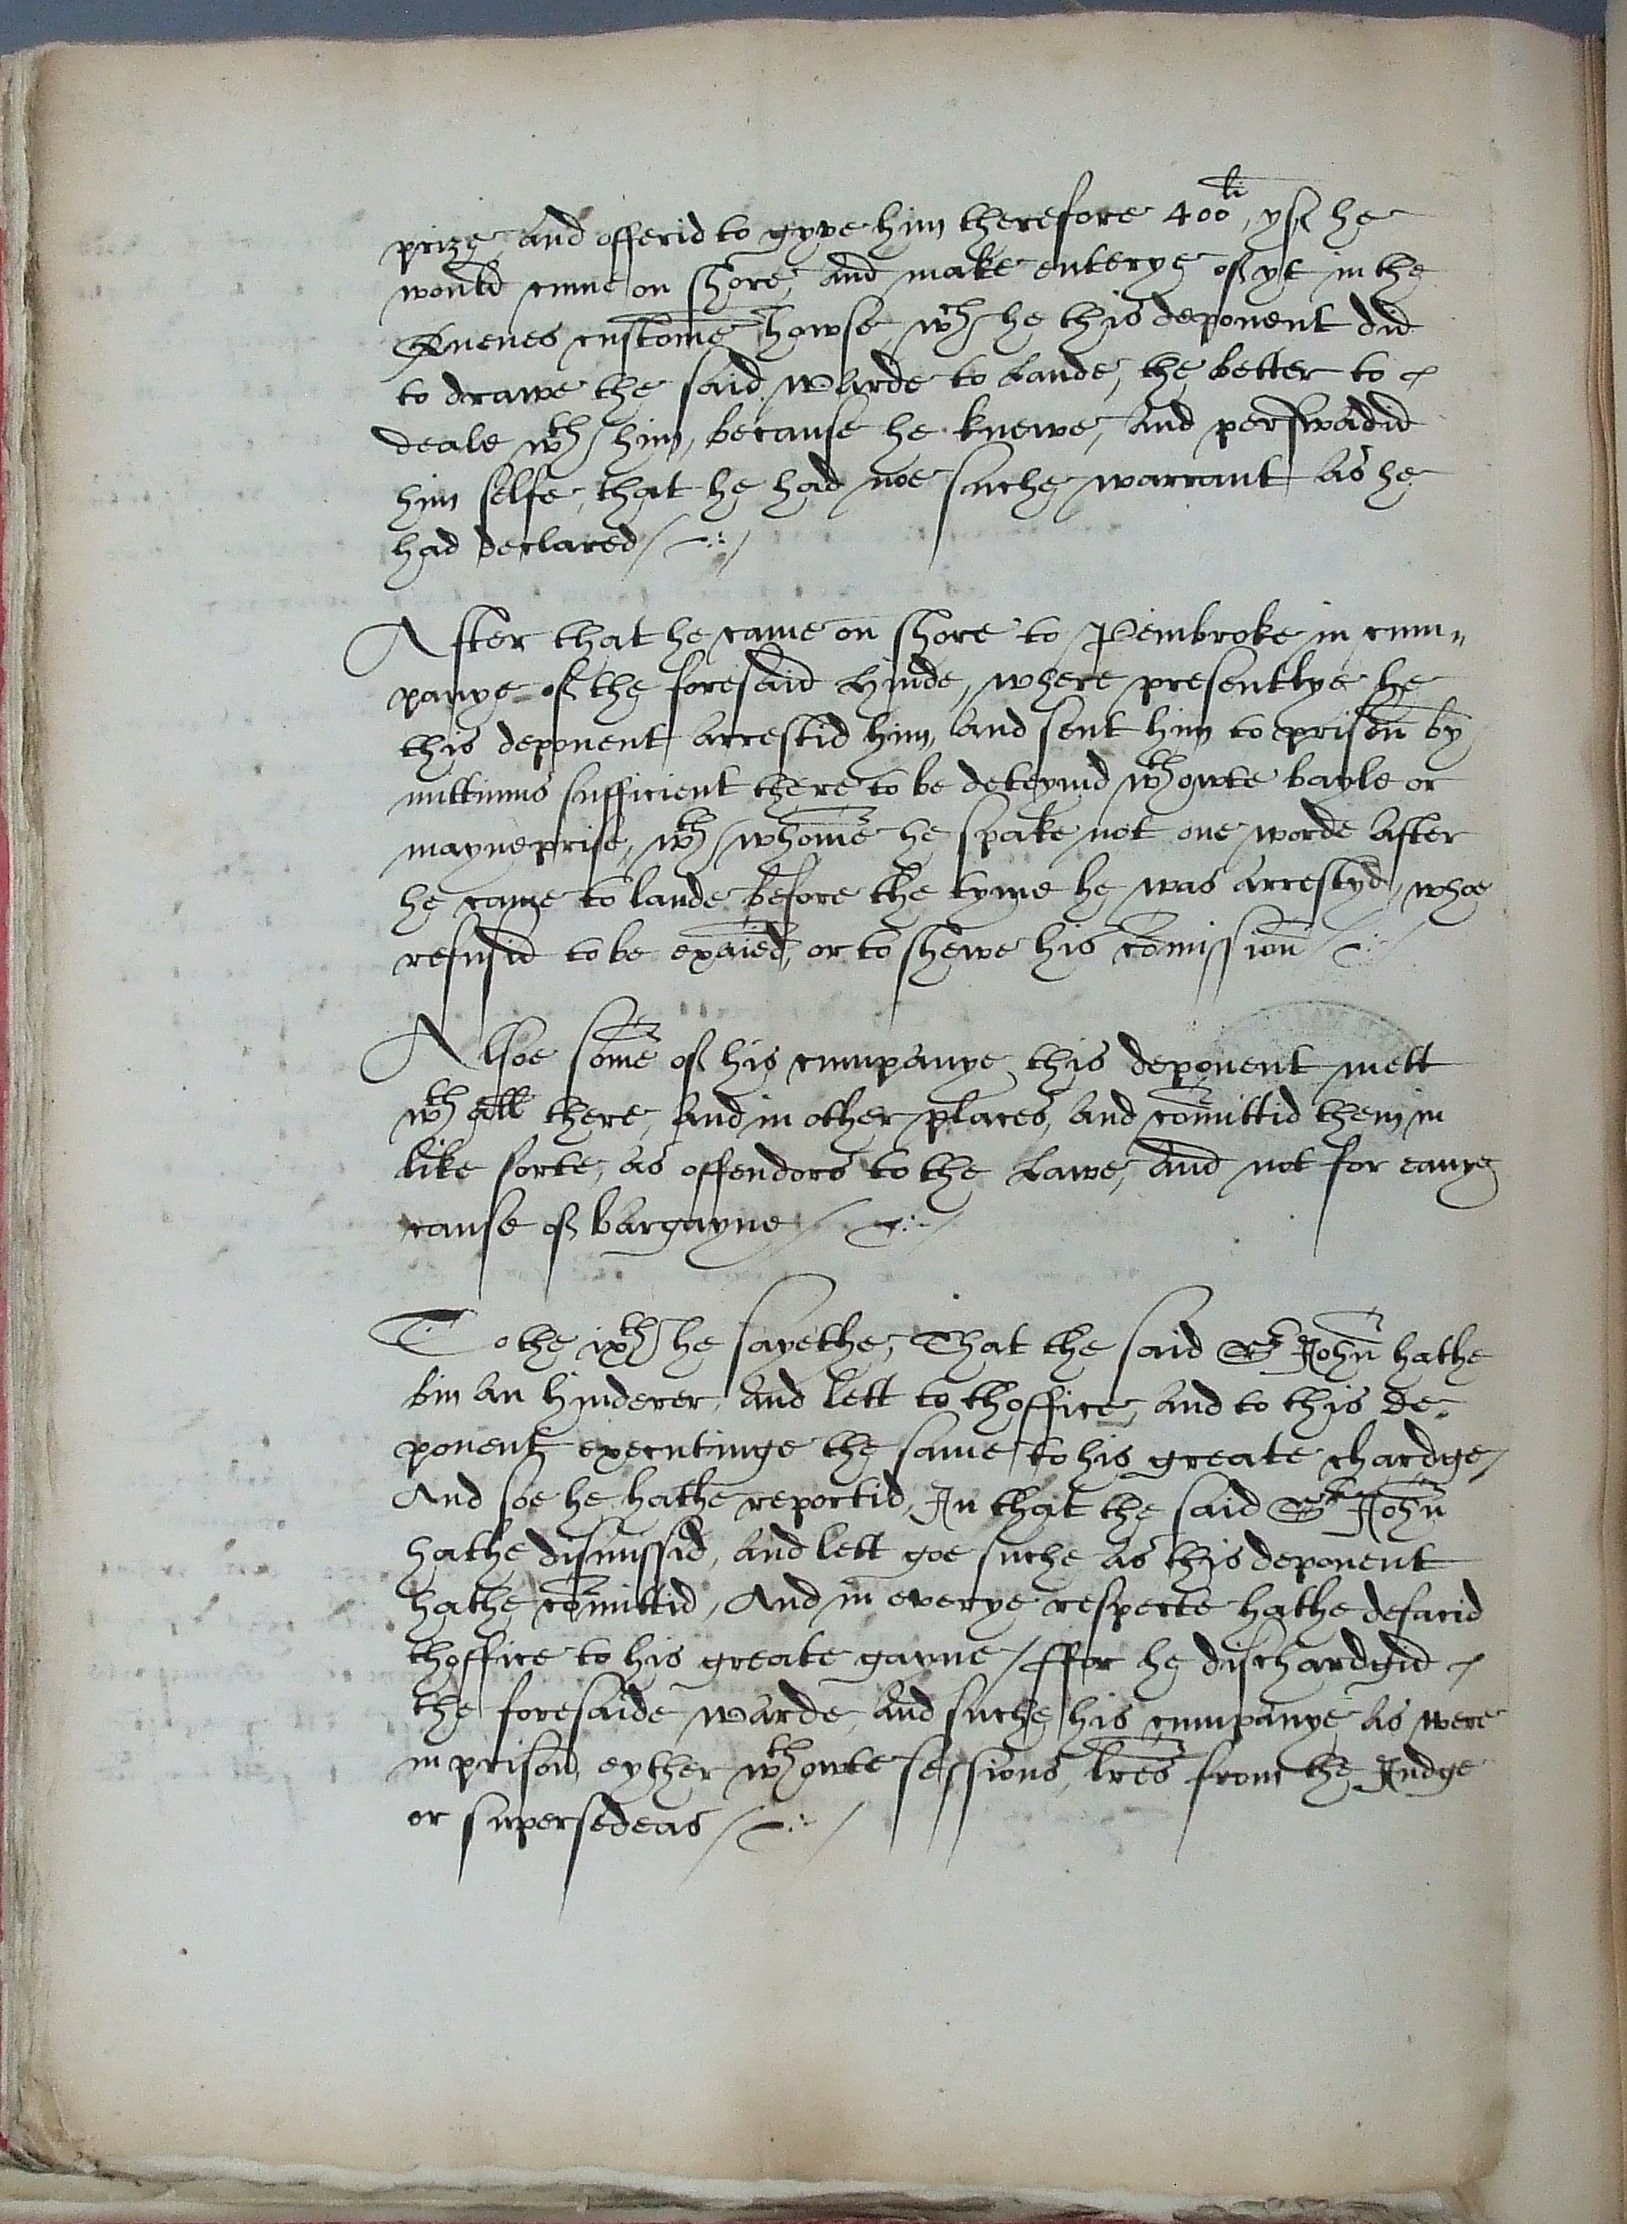 prize, and offerid to gyve him therefore 400li, yf he
would cume on shore, and make enterye of yt in the
Quenes custome howse, wch he this deponent did
to drawe the said Warde to Lande, the better to
deale wth him, because he knewe, and perswadid
him selfe, that he had noe suche warrant as he
had declared /
After that he came on shore to Pembroke in cum=
panye of the foresaid Hinde, where presentlye he
this deponent arrestid him, and sent him to prison by
mittimus sufficient there to be deteynid wthowte bayle or
mayneprise, wth whome he spake not one worde after
he came to lande before the tyme he was arrestyd, whoe
refusid to be exaied, or to shewe his comission /
Alsoe some of his cumpanye this deponent mett
wth all there, and in other places, and comittid them in
like sorte, as offendors to the Lawe, and not for eanye
cause of bargayne /
To the ixth he sayethe, That the said Sr John hathe
bin an hinderer, and lett to thoffice, and to this de=
ponent executinge the same to his greate chardge /
And soe he hathe reportid, In that the said Sr John
hathe dismissid, and lett goe suche as this deponent
hathe comittid, And in everye respecte hathe defacid
thoffice to his greate gayne / ffor he dischardgid
the foresaide Warde, and suche his cumpanye as were
in prison, eyther wthowte sessions, lres from the Judge
or supersedeas /